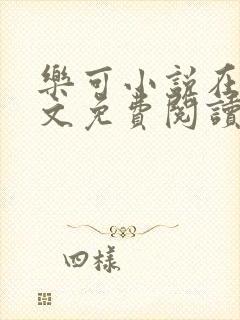 樂可小說在
文免費閱讀
四樣